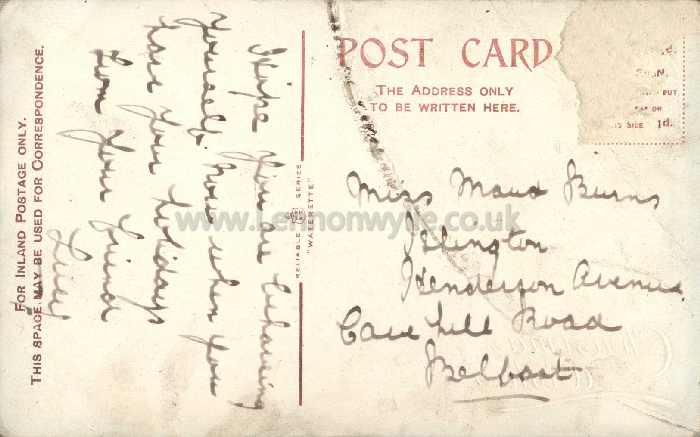 FOR INLAND POSTAGE ONLY.
THIS SPACE MAY BE USED FOR CORRESPONDENCE.
I Hope you are behaving
yourself now when you
have your holidays
from your friend
Lucy
RELIABLE SERIES
"WATERETTE"
POST CARD
THE ADDRESS ONLY
TO BE WRITTEN HERE.
PUT
SIDE 1d.
Miss Maud Burns
Islington
Henderson Avenue
Cave hill Road
Belfast
www.Lennonwylie.co.uk